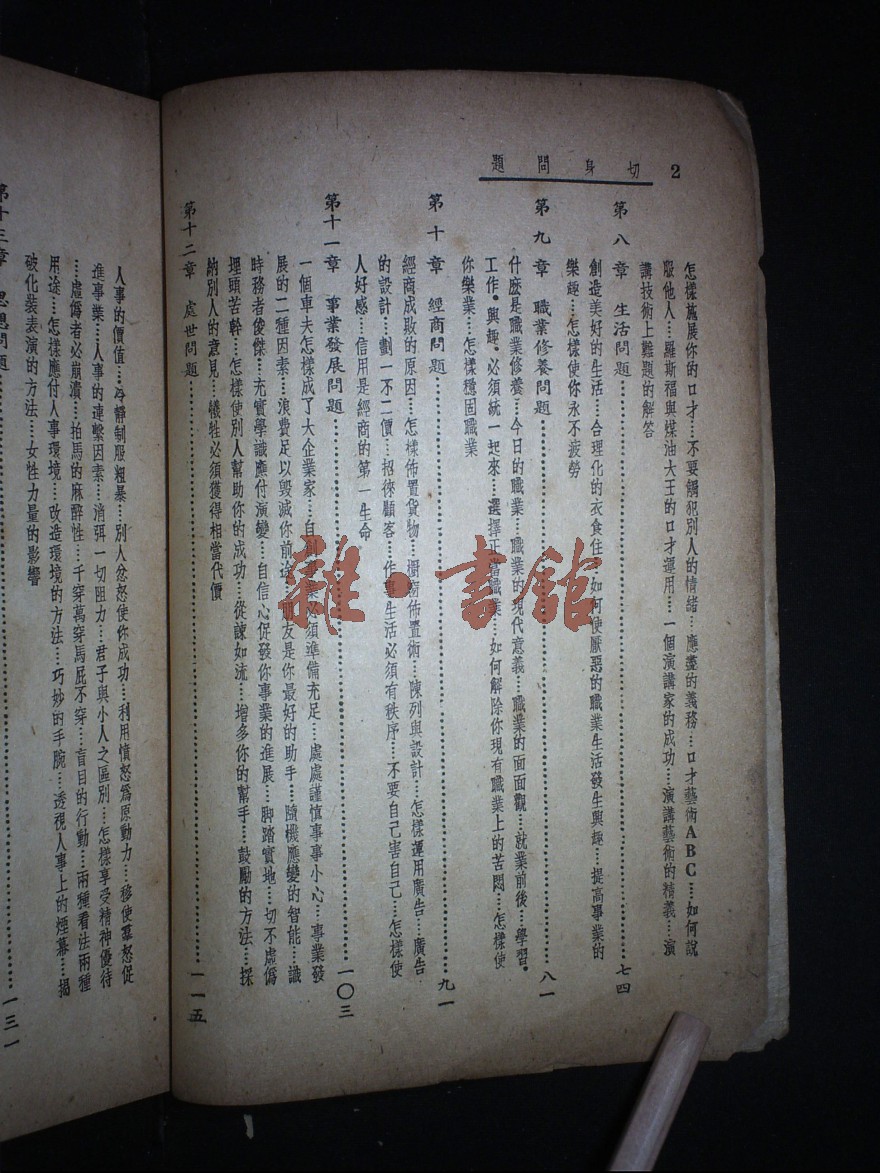 2
切身問題
怎樣施展你的口才…不要觸犯別人的情緒…應盡的義務…口才藝術ABC…如何說
服他人…羅斯福與煤油大王的口才運用…一個演講家的成功…演講藝術的精義…演
講技術上難題的解答
第八章 生活問題…七四
創造美好的生活…合理化的衣食住…如何使厭惡的職業生活發生興趣…提高事業的
樂趣…怎樣使你永不疲勞
第九章 職業修養問題…八一
什麽是職業修養…今日的職業…職業的現代意義…職業的面面觀…就業前後…學習·
工作·興趣·必須統一起來…選擇正當職業…如何解除你現有職業上的苦悶…怎樣使
你樂業…怎樣穩固職業
第十章 經商問題…九一
經商成敗的原因…怎樣佈置貨物…櫥窗佈置術…陳列與設計…怎樣運用廣告…廣告
的設計…劃一不二價…招徠顧客…作事生活必須有秩序…不要自己害自己…怎樣使
人好感…信用是經商的第一生命
第十一章 事業發展問題…一〇三
一個車夫怎樣成了大企業家…自創事業必須準備充足…處處謹慎事事小心…事業發
展的二種因素…浪費足以毀滅你前途…朋友是你最好的助手…隨機應變的智能…識
時務者俊傑…充實學識應付演變…自信心促發你事業的進展…脚踏實地…切不虛僞
埋頭苦幹…怎樣使別人幫助你的成功…從諫如流…增多你的幫手…鼓勵的方法…採
納別人的意見…犧牲必須獲得相當代價
第十二章 處世問題…一一五
人事的價值…冷靜制服粗暴…別人忿怒使你成功…利用憤怒爲原動力…移使羣怒促
進事業…人事的連繫因素…消弭一切阻力…君子與小人之區別…怎樣享受精神優待
…虛僞者必崩潰…拍馬的麻醉性…千穿萬穿馬屁不穿…盲目的行動…兩種看法兩種
用途…怎樣應付人事環境…改造環境的方法…巧妙的手腕…透視人事上的煙幕…揭
破化裝表演的方法…女性力量的影響
第十三章 思想問題…一三一
雜·書館